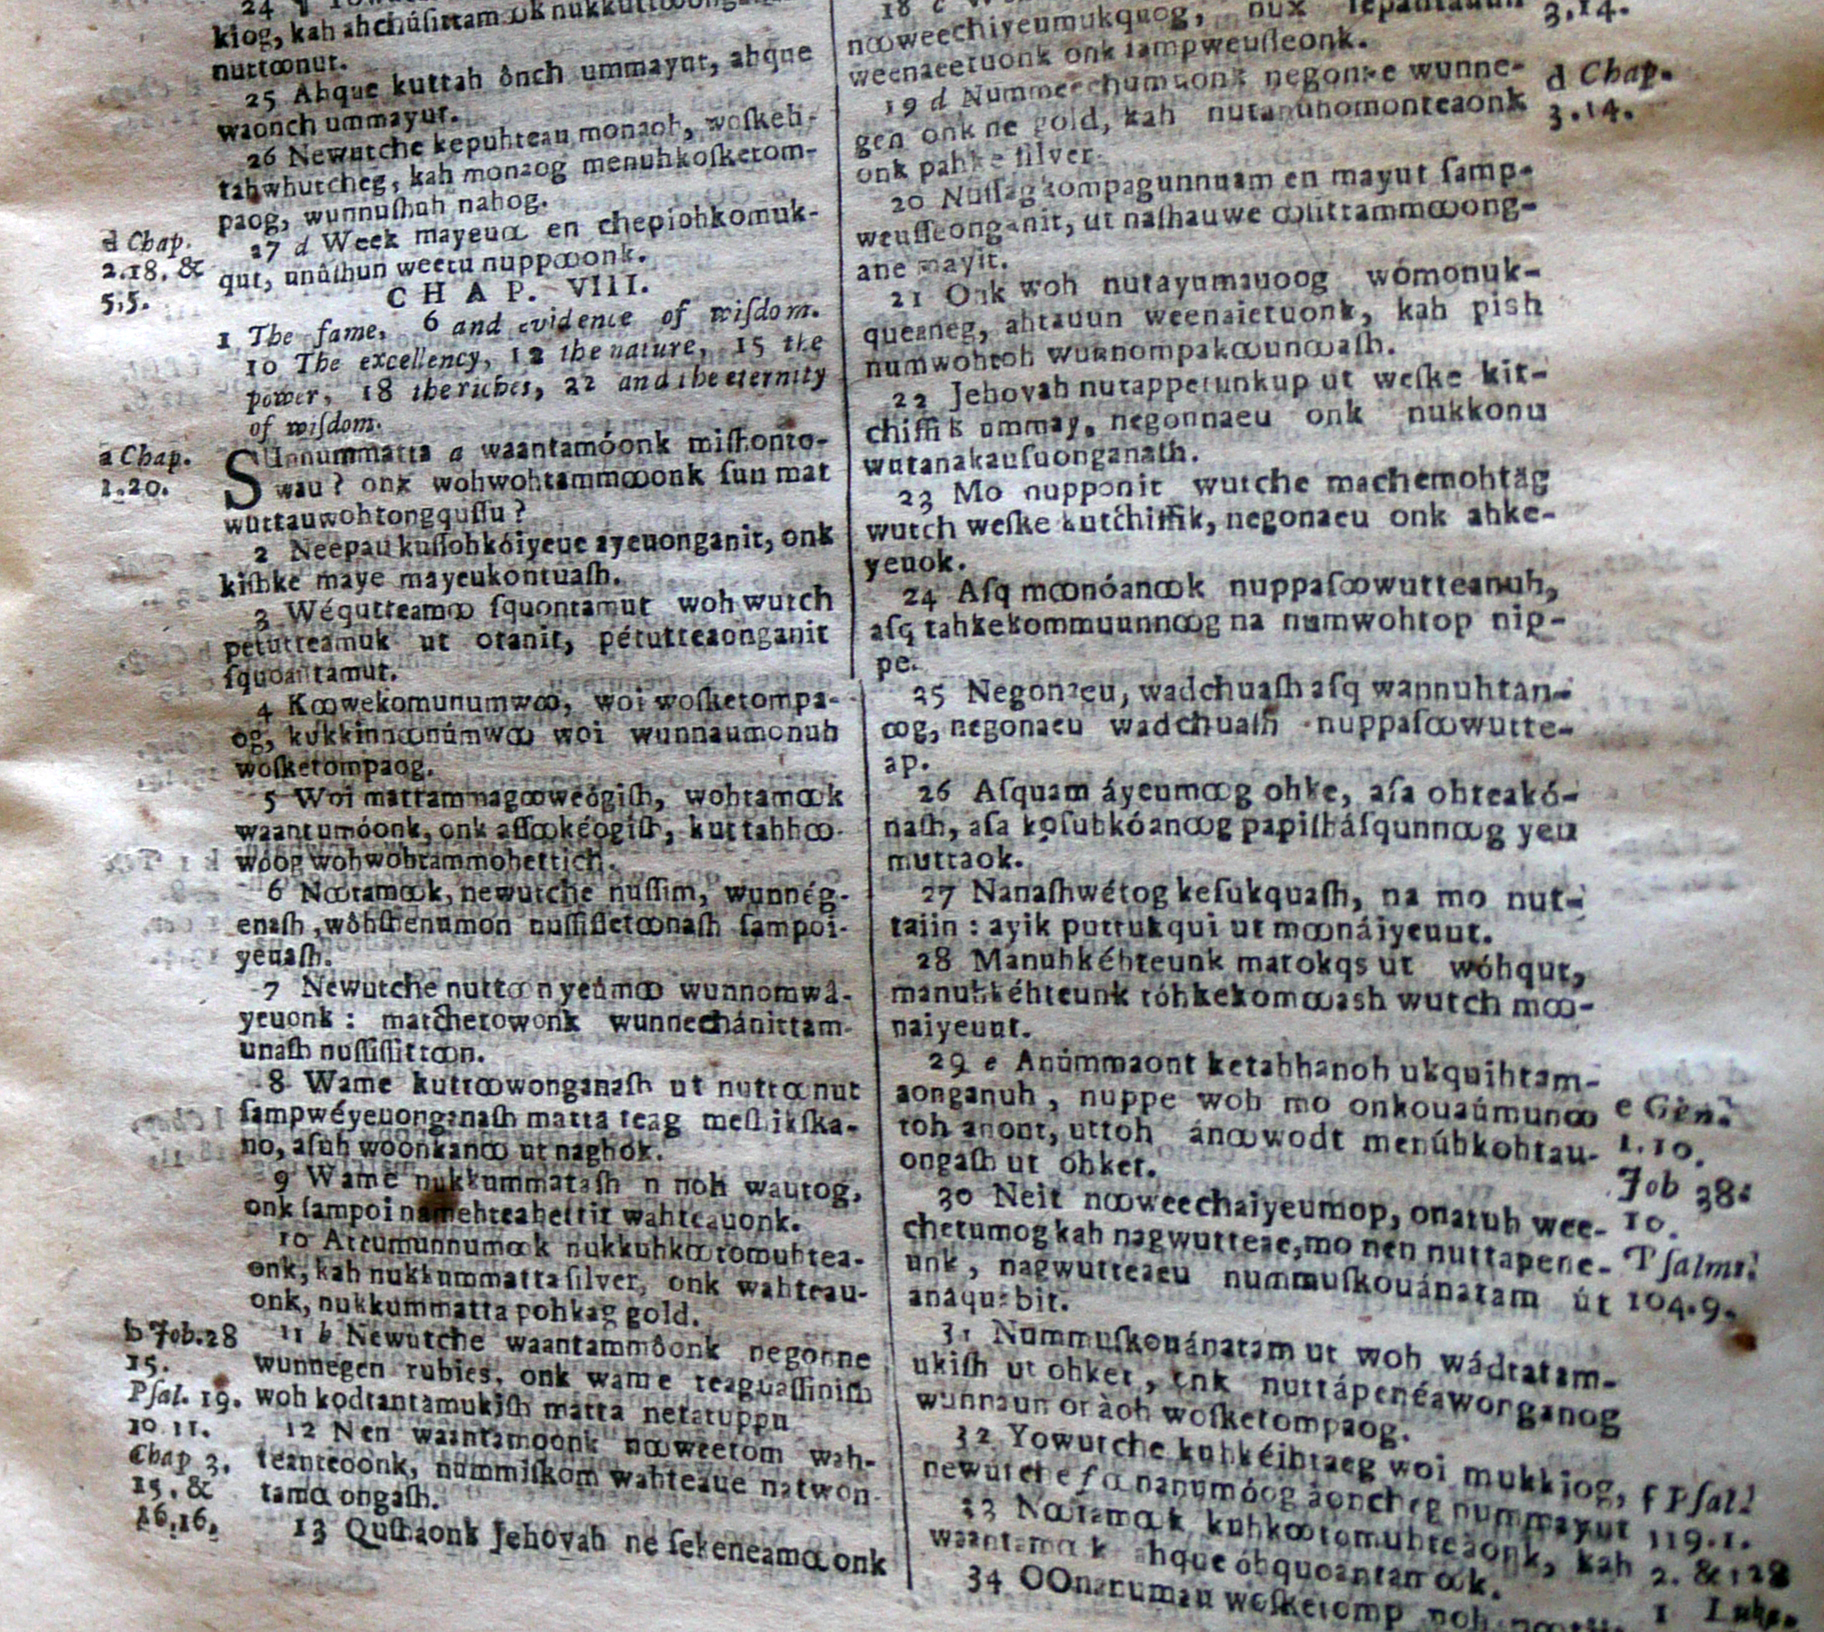 kiog, kah ahchúſittam ꝏk
nuttꝏnut.
25 Ahque kuttah ônch ummayut, ahque
waonch ummayut.
26 Newutche kepuhteau monaoh, woſkeh-
tahwhutcheg, kah monaog menuhkoſketom-
paog, wunnuſhuh nahog.
27 d Week mayeuꝏ en chepiohkomuk-
qut, unûſhun weetu nuppꝏonk.
d Chap.
2.18. &
5.5.
CHAP. VIII.
1 The fame, 6 and evidence of wiſdom.
10 The excellency, 12 the nature, 15 the
power, 18 the riches, 22 and the eternity
of wiſdom.
a Chap.
1.20.
SUnnummatta a waantamóonk miſhonto-
wau? onk wohwohtammꝏonk ſun mat
wuttauwohtongquſſu?
2 Neepau kuſſohkóiyeue ayeuonganit, onk
kiſhke maye mayeukontuaſh.
3 Wéqutteamꝏ ſquontamut woh wutch
petutteamuk ut otanit, pétutteaonganit
ſquontamut.
4 Kꝏwekomunumwꝏ, woi woſketompa-
og, kukkinnꝏnúmwꝏ woi wunnaumonuh
woſketompaog.
5 Woi mattammagꝏweógiſh, wohtamꝏk
waantumóonk, onk aſſꝏkéogiſh, kuttahhꝏ-
wóog wohwohtammohettich.
6 Nꝏtamꝏk, newutche nuſſim, wunnég-
enaſh, wôhſhenumon nuſſiſſetꝏnaſh ſampoi-
yeuaſh.
7 Newutche nuttꝏn yeúmꝏ wunnomwâ-
yeuonk: matchetowonk wunnechánittam-
unaſh nuſſiſſittꝏn.
8 Wame kuttꝏwonganaſh ut nuttꝏnut
ſampwéyeuonganaſh matta teag
no, aſuh woonkanꝏ ut naghok.
9 Wame nukkummataſh n noh wautog,
onk ſampoi namehteahettit wahteauonk.
10 Attumunnumꝏk nukkuhkꝏtomuhtea-
onk, kah nukkummatta ſilver, onk wahteau-
onk, nukkummatta pohkag gold.
b Job.28
15.
Pſal. 19.
10 11.
Chap 3.
15. &
16.16.
11 b Newutche waantammôonk negonne
wunnegen rubies, onk wame teaguaſſiniſh
woh kodtantamukiſh matta netatuppu
12 Nen waantamoonk nꝏweetom wah-
teanteoonk, nummiſkom wahteaue natwon
tamꝏongaſh.
13 Quſhaonk Jehovah ne ſekeneamꝏonk
nꝏweechiyeumukquog,
weenaeetuonk onk ſampweuſſeonk.
3.14.
19 d Nummeechumuonk negonne wunne-
gen onk ne gold, kah nutanuhomonteaonk
onk pahke ſilver.
d Chap.
3.14.
20 Nuſſagkompagunnuam en mayut ſamp-
weuſſeonganit, ut naſhauwe ꝏſittammꝏong-
ane mayit.
21 Onk woh nutayumauoog wómonuk-
queaneg, ahtauun weenaietuonk, kah piſh
numwohtoh wunnompakꝏunꝏaſh.
22 Jehovah nutappetunkup ut weſke kit-
chiſſik ummay, negonnaeu onk nukkonu
wutanakauſuonganaſh.
23 Mo nupponit wutche machemohtäg
wutch weſke kutchiſſik, negonaeu onk ahke-
yeuok.
24 Aſq mꝏnóanꝏk nuppaſꝏwutteanuh,
aſq tahkekommuunnꝏg na numwohtop nip-
pe.
25 Negonaeu, wadchuaſh aſq wannuhtan-
ꝏg, negonaeu wadchuaſh nuppaſꝏwutte-
ap.
26 Aſquam áyeumꝏg ohke, aſa ohteakó-
naſh, aſa koſuhkóanꝏg papiſháſqunnꝏg yeu
muttaok.
27 Nanaſhwétog keſukquaſh, na mo nut-
taiin: ayik puttukqui ut mꝏnáiyeuut.
28 Manuhkéhteunk matokqs ut wóhqut,
manuhkéhteunk tóhkekomꝏash wutch mꝏ-
naiyeuut.
29 e Anúmmaont ketahhanoh ukquihtam-
aonganuh, nuppe woh mo onkouaúmunꝏ
toh anont, uttoh ánꝏwodt menúhkohtau-
ongaſh ut ohket.
e Gen.
1.10.
Job 38:
10.
Pſalms.
104.9.
30 Neit nꝏweechaiyeumop, onatuh wee-
chetumog kah nagwutteae, mo nen nuttapene-
unk, nagwutteaeu nummuſkouánatam út
anaquabit.
31 Nummuſkouánatam ut woh wádtatam-
ukiſh ut ohket, onk nuttápenéaworganog
wunnaun otàoh woſketompaog.
32 Yowutche kuhkéihtaeg woi mukkiog,
newutche f ꝏnanumóog áoncheg nummayut
f Pſal.
119.1.
2. & 128
1 Luke.
33 Nꝏtamꝏk kuhkꝏtomuhteaonk, kah
waantamꝏk ahque óhquoantamꝏk.
34 OOnanumau woſketomp noh